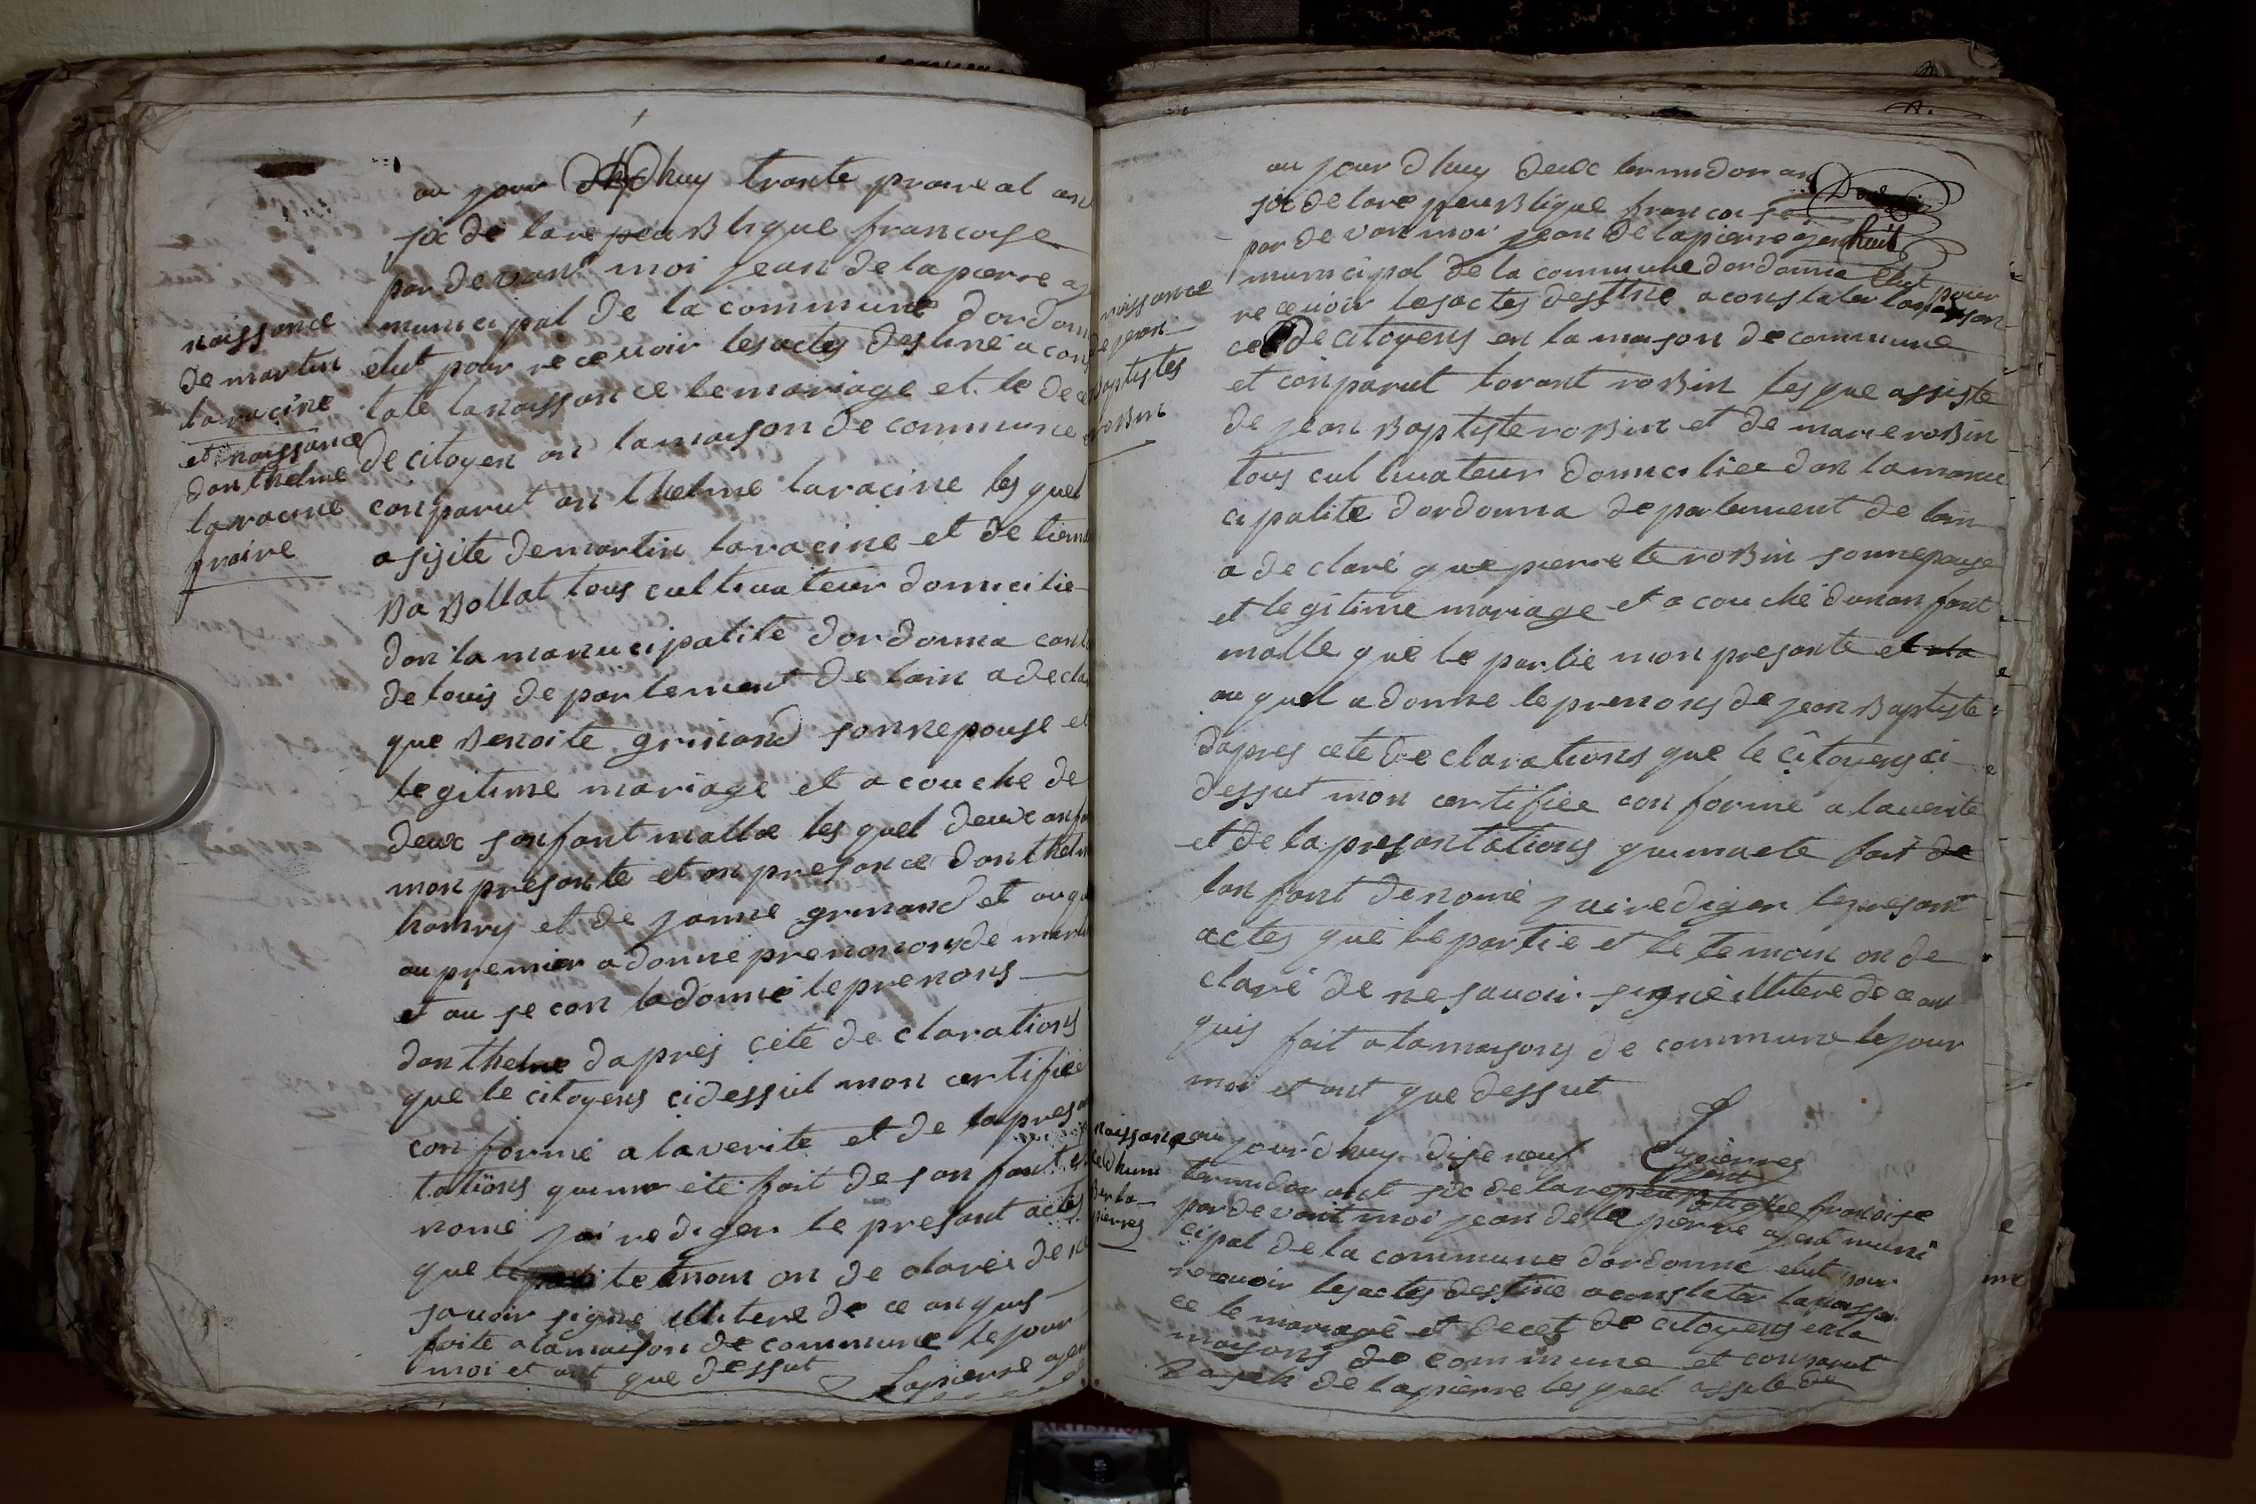 au jour Dhuy trante prareal an
six de lare peu Blique francoise
par de vant moi jean de lapierre ag
municipal de la commune dordonn
elut pour re ce uoir lesactes destiné a cons
tate lanaissan ce le mariage et le de ce
de citoyen an lamaison de commune
conparut an thelme laracine les quel
asisite demartin laracine et de tienn
Ba Bollat tous cultiuateur domicilie
dan la manucipalité dordonna cant
de louis de partement de lain a decla
que Benoite grinand sonnepouse et
legitime mariage et a couche de
deux sanfant malle les quel deux anfa
mon presante et an presance danthelm
hanry et de janne grinand et auqu
au premier a donné prenonons de mart
et au se con ladonné leprenons
danthelme dapres cete de clarations
que le citoyens cidessut mon certifiée
con formé a laverité et de lapresa
tations quima eté fait de san fant
nomé jai rediger le presant actes
que le temoin on de clarés de ne
sauoir signe illitere de ce anquis
faite a lamaison de commune lejour
moi et ant que dessut
Lapierre agen
naissance
de martin
laracine
et naissance
danthelme
laracine
fraire
au jour dhuy deux termidor an
six de lare peuBlique francoise
par de van moi jean de lapierre agen
municipal de la commune dordonna elut pour
re ceuoir lesactes destiné aconstater lanaissan
ce de citoyens en la maison de commune
et conparut lorant roBin lesque assiste
de jean Baptiste roBin et de marie roBin
tous cul tiuateur domiciliee dan lamanu
cipalité dordonna departement de lain
a de claré que pierrete roBin sonnepouse
et legitime mariage et a couché dunanfant
malle que le partie mon presante et
au quel a donne leprenons de jean Baptiste
dapres cete de clarations que le citoyens ci
dessut mon certifiee con formé a lauerite
et de lapresantations quimaete fait de
lan fant denomé jai rediger lepresant
actes que le partie et le temoin on de
claré de nesauoir signé illitere de ce an
quis fait a lamaisons de commune lejour
moi et ant que dessut
Lapierres
agent
naissance
de jean
Baptistes
roBin
au jourdhuy dise neuf
termidor ant six de lare peuBlique francoise
par de vant moi jean de la pierre agent muni
cipal de la commune dordonna elut pour
receuoir lesactes destine aconstater lanaissan
ce le mariage et deces de citoyens en la
maisons de commune et conparut
de lapierre les quel assiste de
naissan
ce dhum
ber la
pierres